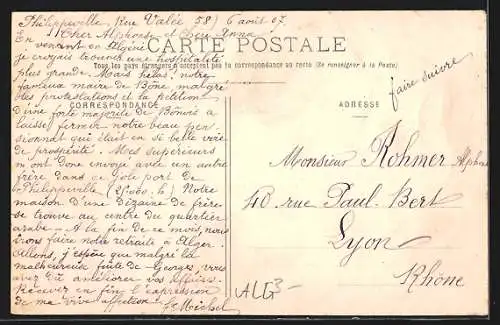 Philippeville, Rue Valée 58) 6 août 07.
Cher Alphonse et Cher Anna
En venant en Algérie
je croyais trouver une hospitalité
plus grande. Mais hélas! notre
fameux maire de Bône malgré
les protestations et la pétition
d'une forte majorité de Bônois a
laissé fermer notre beau pen-
sionnat qui était en si belle voie
de prospérité. Mes supérieurs
m'ont donc envoyé avec un autre
frère dans ce joli port de
Philippeville (25,000 h.) Notre
maison d'une dizaine de frères
se trouve au centre du quartier
arabe - A la fin de ce mois, nous
irons faire notre retraite à Alger.
Allons, j'espère que malgré la
malheureuse fuite de Georges, vous
avez dû améliorer vos affaires.
Recevez en fin l'expression
de ma vive affection. f. Michel
CARTE POSTALE
Tous les pays étrangers n'acceptent pas la correspondance au recto (Se renseigner à la Poste)
CORRESPONDANCE
ADRESSE
faire suivre
Monsieur Rohmer Alphonse
40 rue Paul-Bert
Lyon
Rhône
ALG3-